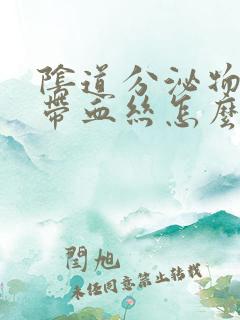 陰道分泌物
帶血絲怎麼
閆旭
未经同意禁止转载